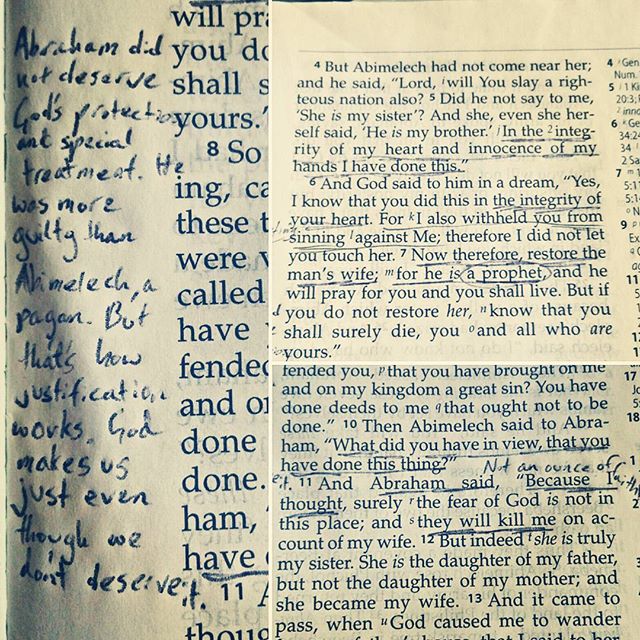 Abraham did
not deserve
God's protection
and special
treatment. He
was more
guilty than
Abimelech, a
pagan. But
that's how
justification
works. God
makes us
just even
though we
don't deserve it.
will pra
you do
shall s
yours."
8 So
ing, ca
these t
were v
called
have
fended
and on
done
done.
ham,
have
11
thoug
4 But Abimelech had not come near her;
and he said, "Lord, i will You slay a righ-
teous nation also? 5 Did he not say to me,
'She is my sister'? And she, even she her-
self said, 'He is my brother.' j In the 2 integ-
rity of my heart and innocence of my
hands I have done this."
6 And God said to him in a dream, "Yes,
I know that you did this in the integrity of
your heart. For k I also withheld you from
sinning l against Me; therefore I did not let
you touch her. 7 Now therefore, restore the
man's wife; m for he is a prophet, and he
will pray for you and you shall live. But if
you do not restore her, n know that you
shall surely die, you o and all who are
yours."
4 i Gen
Num.
5 j 1 Ki
20:3;
2 inno
6 k Ge
34:2
34
2 Sa
7 m
5:1
5:1
9 p
Ex
fended you, p that you have brought on me
and on my kingdom a great sin? You have
done deeds to me q that ought not to be
done." 10 Then Abimelech said to Abra-
ham, "What did you have in view, that you
have done this thing?"
Not an ounce of
faith
11 And Abraham said, "Because I
thought, surely r the fear of God is not in
this place; and s they will kill me on ac-
count of my wife. 12 But indeed t she is truly
my sister. She is the daughter of my father,
but not the daughter of my mother; and
she became my wife. 13 And it came to
pass, when u God caused me to wander
12
17
18